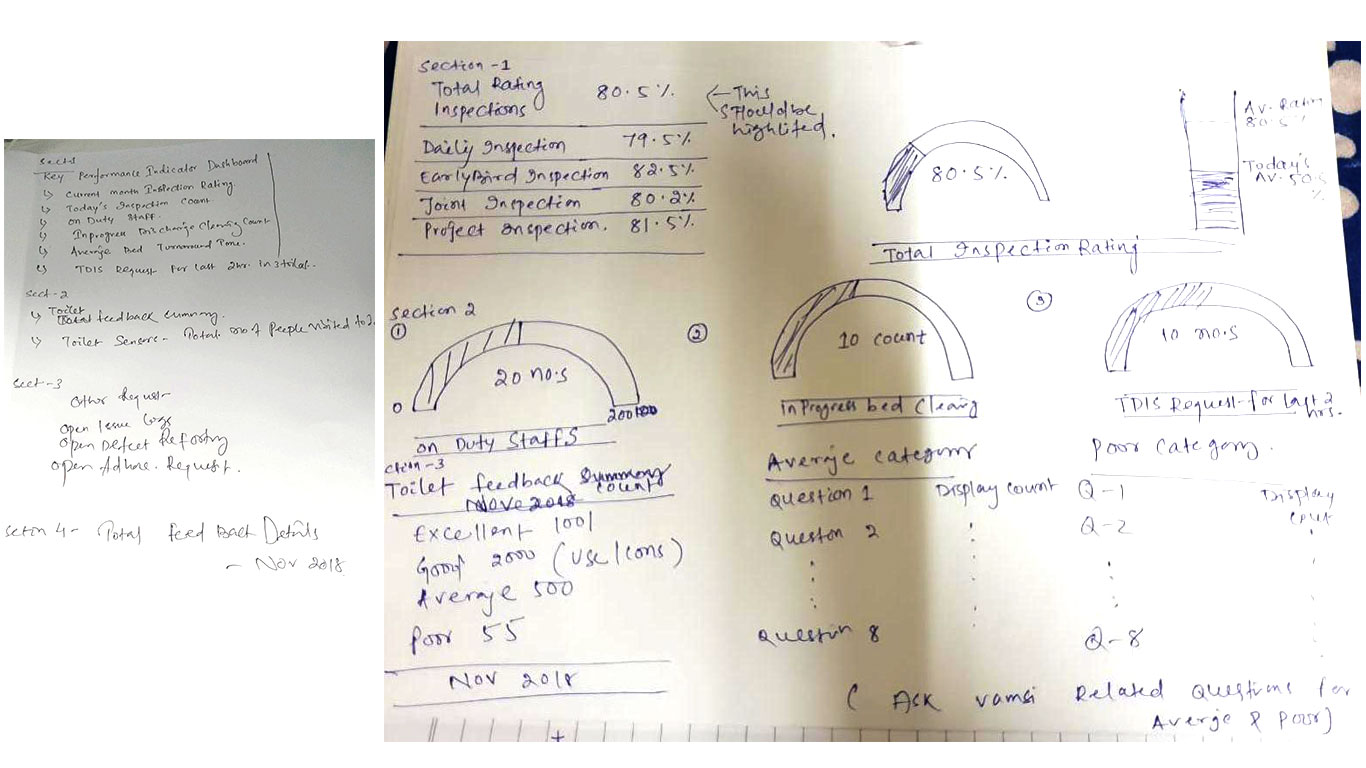 Sect-1
Key Performance Indicator Dashboard
↳ Current month Inspection Rating
↳ Today's Inspection Count
↳ On Duty Staff.
↳ Inprogress Discharge Clearing Count
↳ Average Bed Turnaround Time.
↳ TDIS Request for last 2hr. in
Sect-2
↳ Toilet feedback summary.
↳ Toilet Sensors - Total no of People visited
Sect-3
Other Request
Open Issue Logs
Open Defect Reporting
Open Adhoc. Request.
Section 4 - Total Feed Back Details
- Nov 2018
Section -1
Total Rating Inspections 80.5%
← This Should be highlited.
Daily Inspection 79.5%
EarlyBird Inspection 82.5%
Joint Inspection 80.2%
Project Inspection. 81.5%
80.5%
Total Inspection Rating
Av. Rating
80.5%
Today's
Av. 50.5
%
Section 2
① 20 no.s
0 200
On Duty Staffs
② 10 count
InProgress bed Clearing
③ 10 no.s
TDIS Request for last 2 hrs.
ction -3
Toilet feedback Summary
Nove 2018 count
Excellent 1001
Good 2000 (Use/cons)
Average 500
Poor 55
Nov 2018
Average category
Question 1 Display count
Queston 2
Question 8
Poor Category.
Q-1 Display
count
Q-2
Q-8
( Ask vamsi Related Questions for
Averge & Poor)